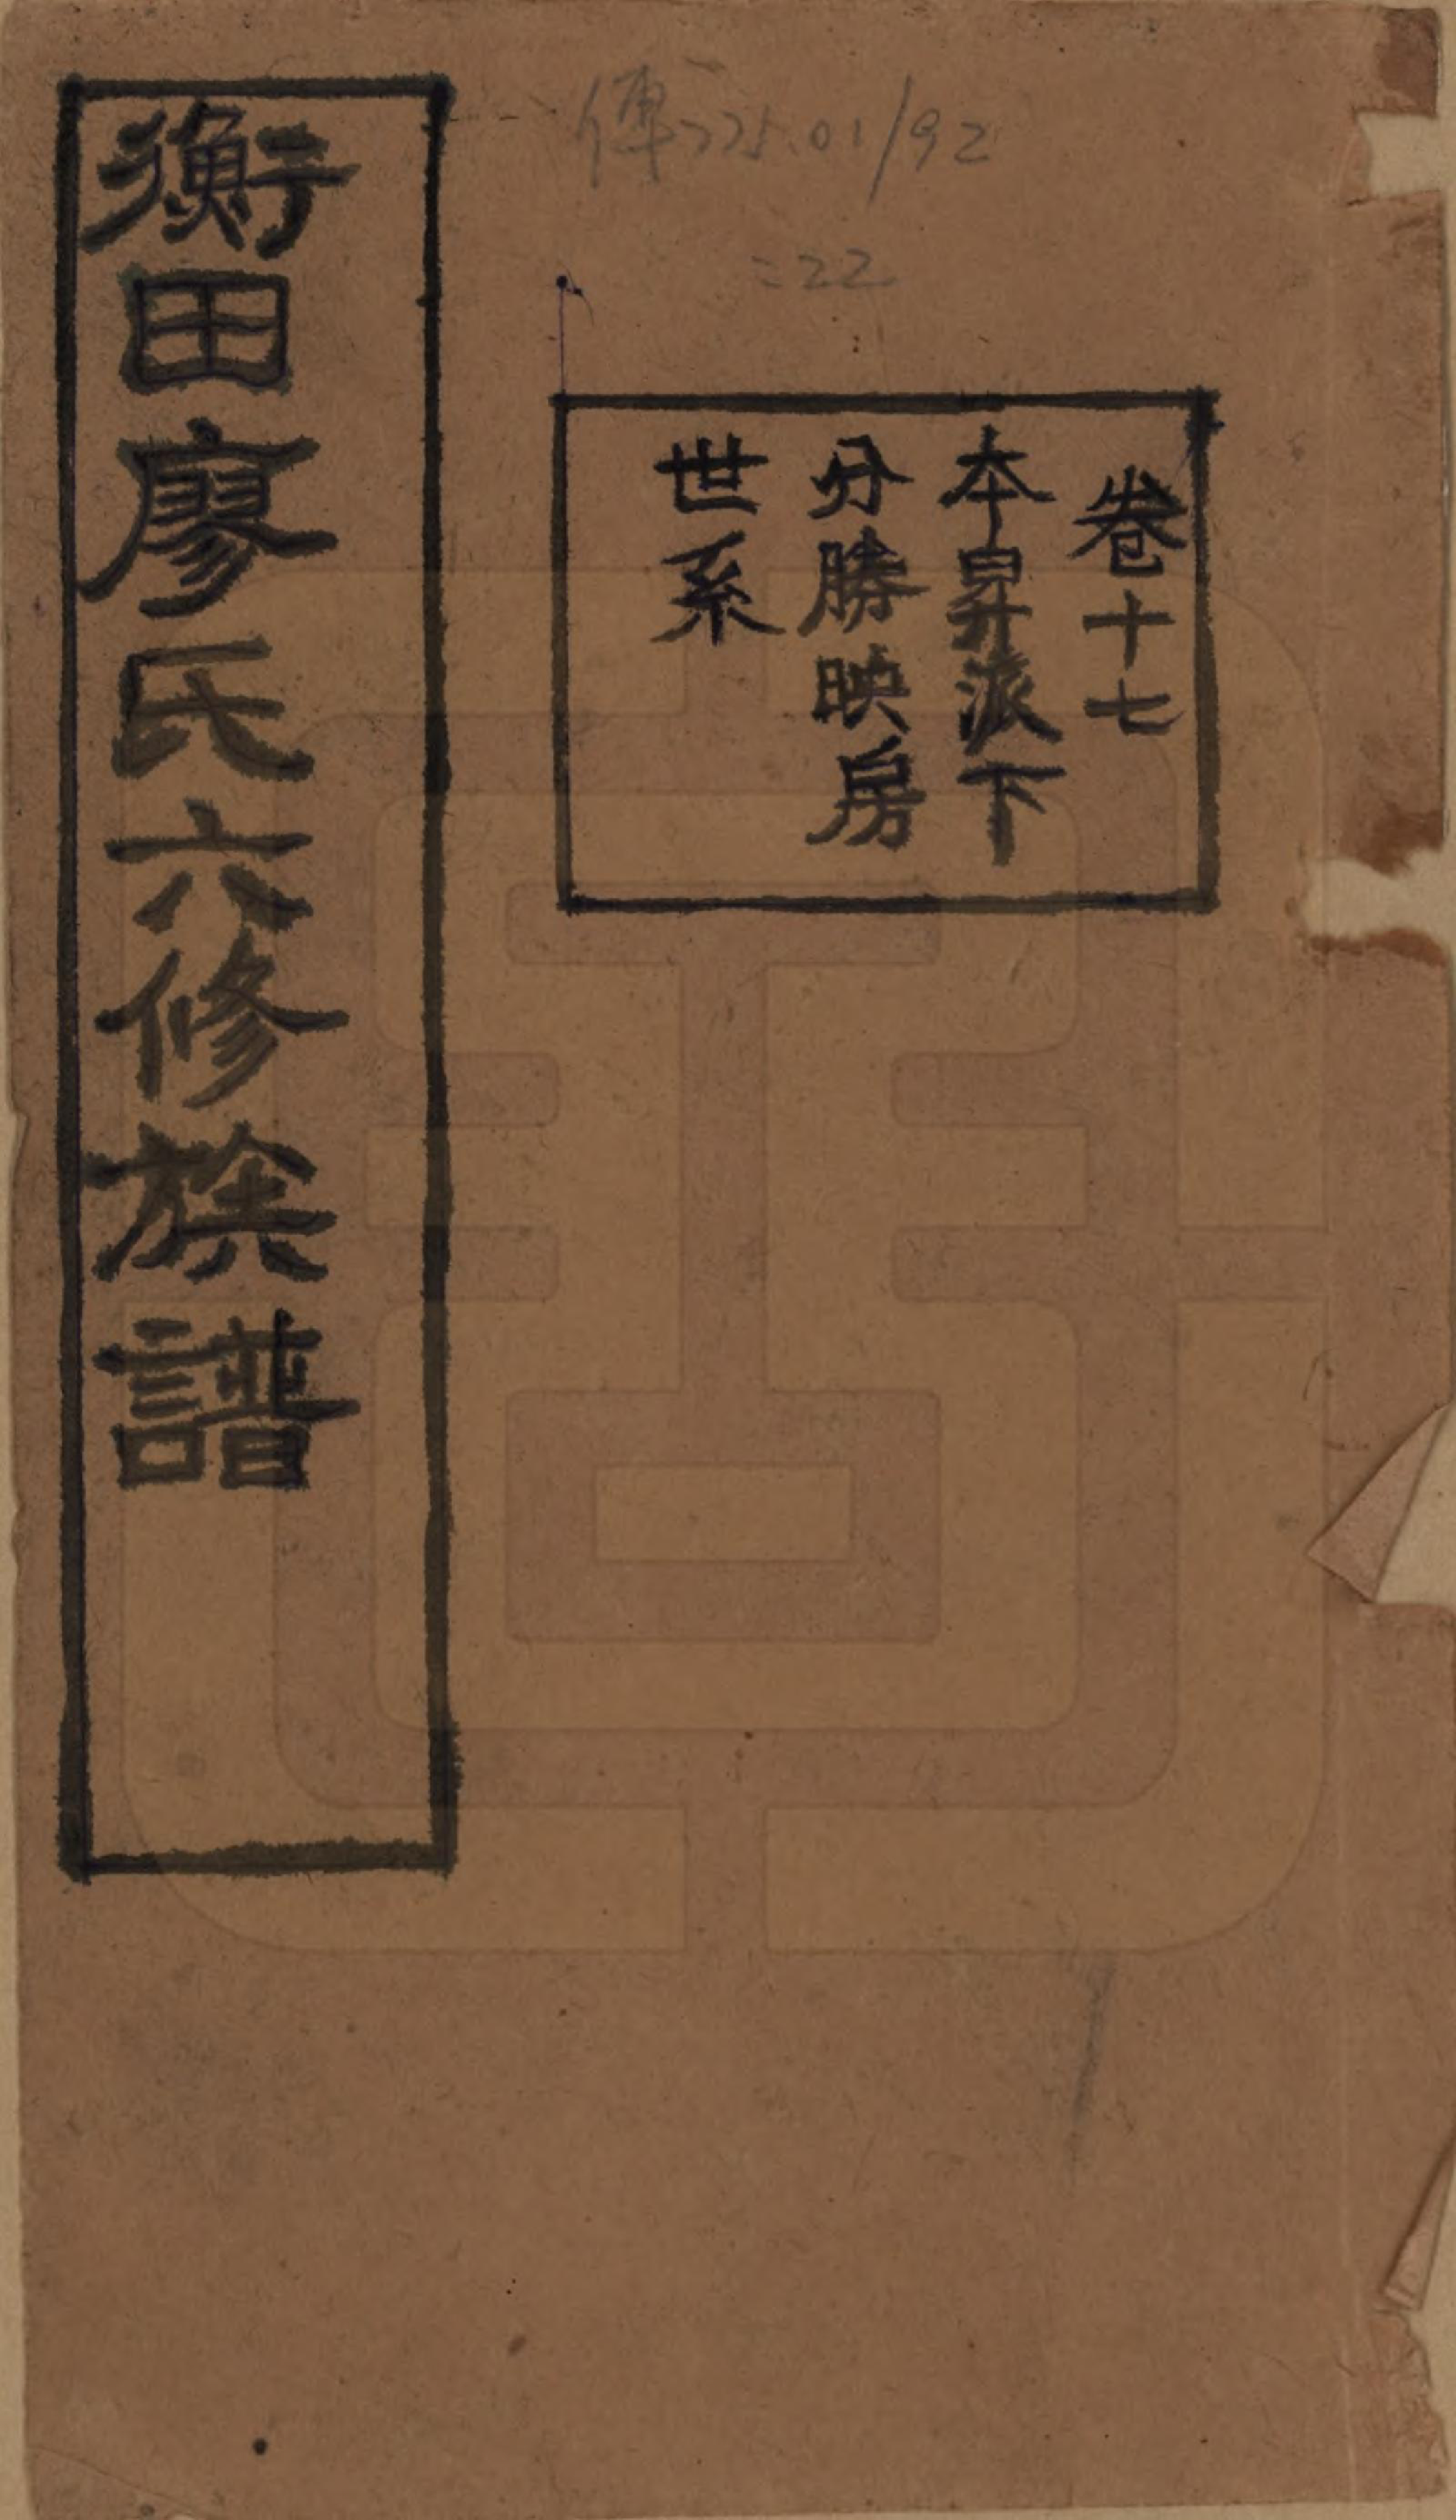 傳775.01/92
:22
卷十七
本昇派下
分勝映房
世系
衡田廖氏六修族譜